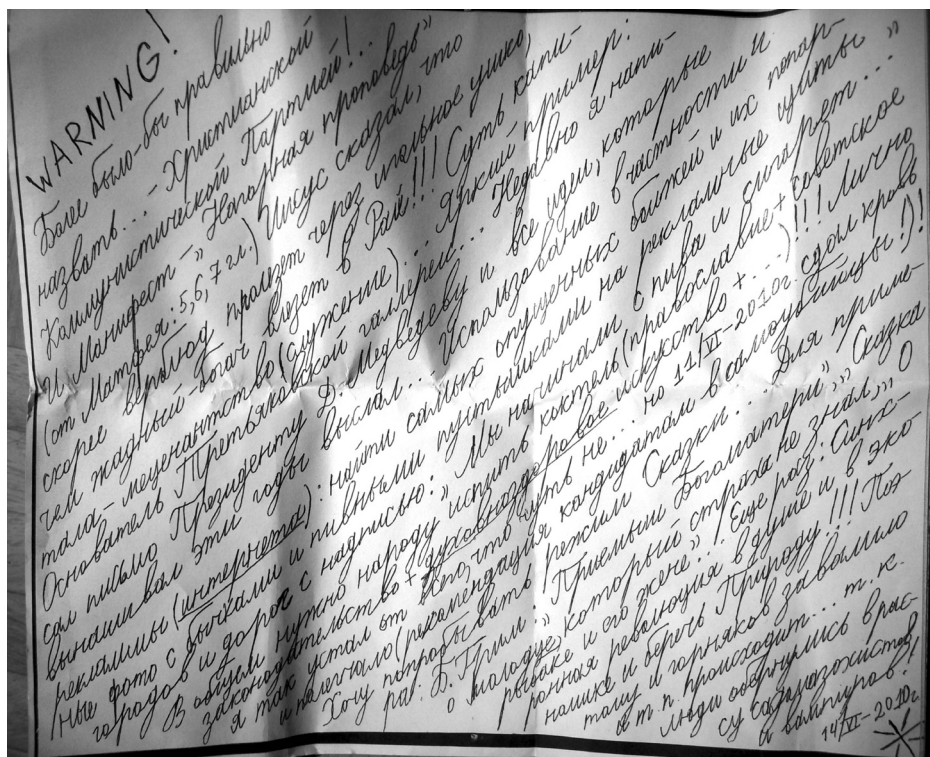 WARNING!
Более было-бы правильно
назвать... – Христианской
Коммунистической Партией!..
И „Манифест" – „Нагорная проповедь"
(от Матфея: 5,6,7 гл.) Иисус сказал, что
скорее верблюд пролезет через игольное ушко,
чем жадный-богач влезет в Рай!!! (Суть, капи-
тала-меценантство (служение)... Яркий пример:
Основатель Третьяковской галлереи... Недавно я напи-
сал письмо Президенту Д. Медведеву и все идеи, которые
вынашивал эти годы выслал... Использование в частности и
рекламы (интернета): найти самых опущенных бомжей и их попар-
ные фото с бычками и пивными пустышками на рекламные щиты
городов и дорог с надписью: „Мы начинали с пива и сигарет..."
В общем нужно народу испить коктель (православие + советское
законодательство + духовноздоровое искусство + ...)!!! Лично
я так устал от что чуть не... но 11/VI-2010г. сдал кровь
и полегчало (рекомендация кандидатам в самоубийцы!)!
Хочу попробывать режим Сказки... Для приме-
ра: Б. Гримм „Приемыш Богоматери", „Сказка
о молодце, который страха не знал", „О
рыбаке и его жене"! Еще раз: Синх-
ронная революция в душе и в эко
номике и беречь Природу!!! Поэ-
тому и горняков завалило
и т.п. происходит... т.к.
люди обернулись в рас-
су садомазохистов
и вампиров!
14/VI-2010г.